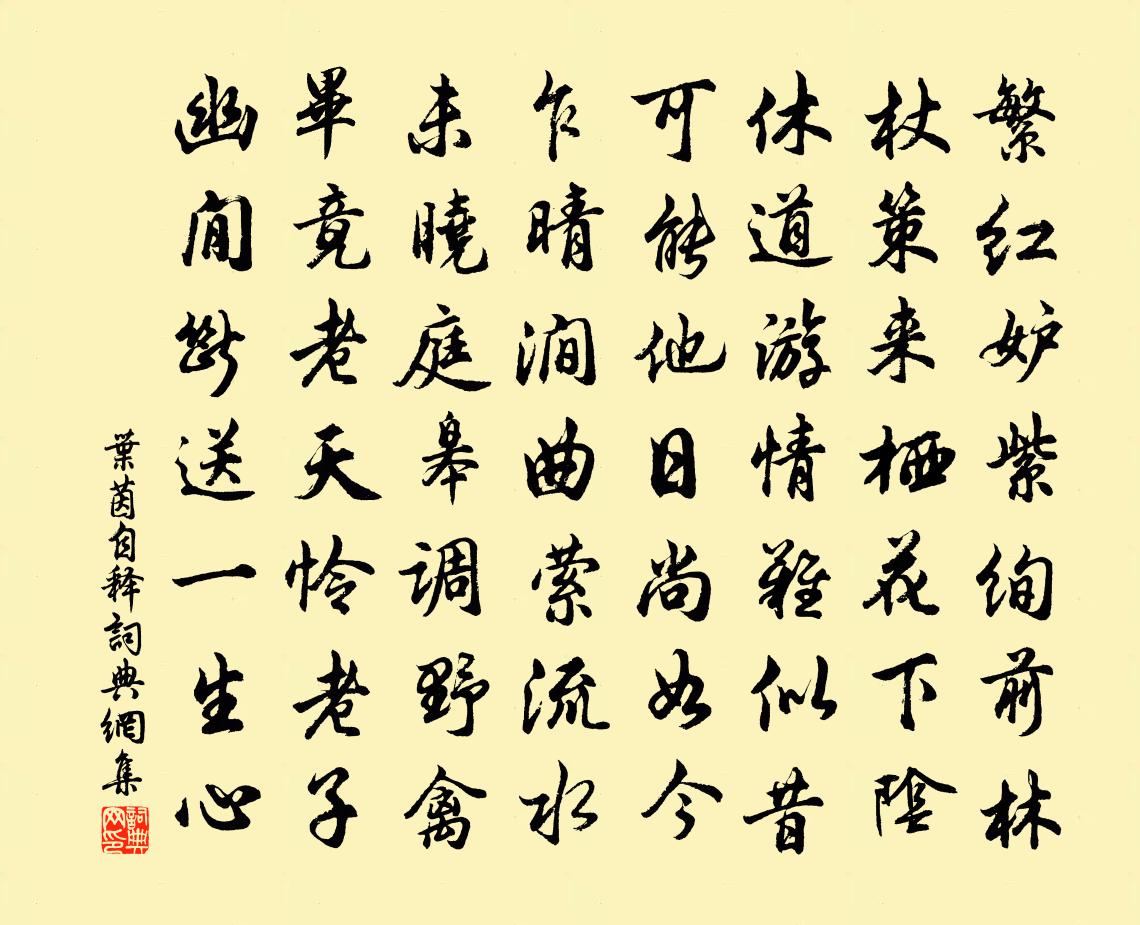 繁红妒紫绚前林
杖策来栖花下陰
休道游情難似昔
可能他日尚如今
乍晴澗曲萦流水
未曉庭皋調野禽
畢竟老天怜老子
幽閒斷送一生心
葉茵自释詞典網集
詞典网印